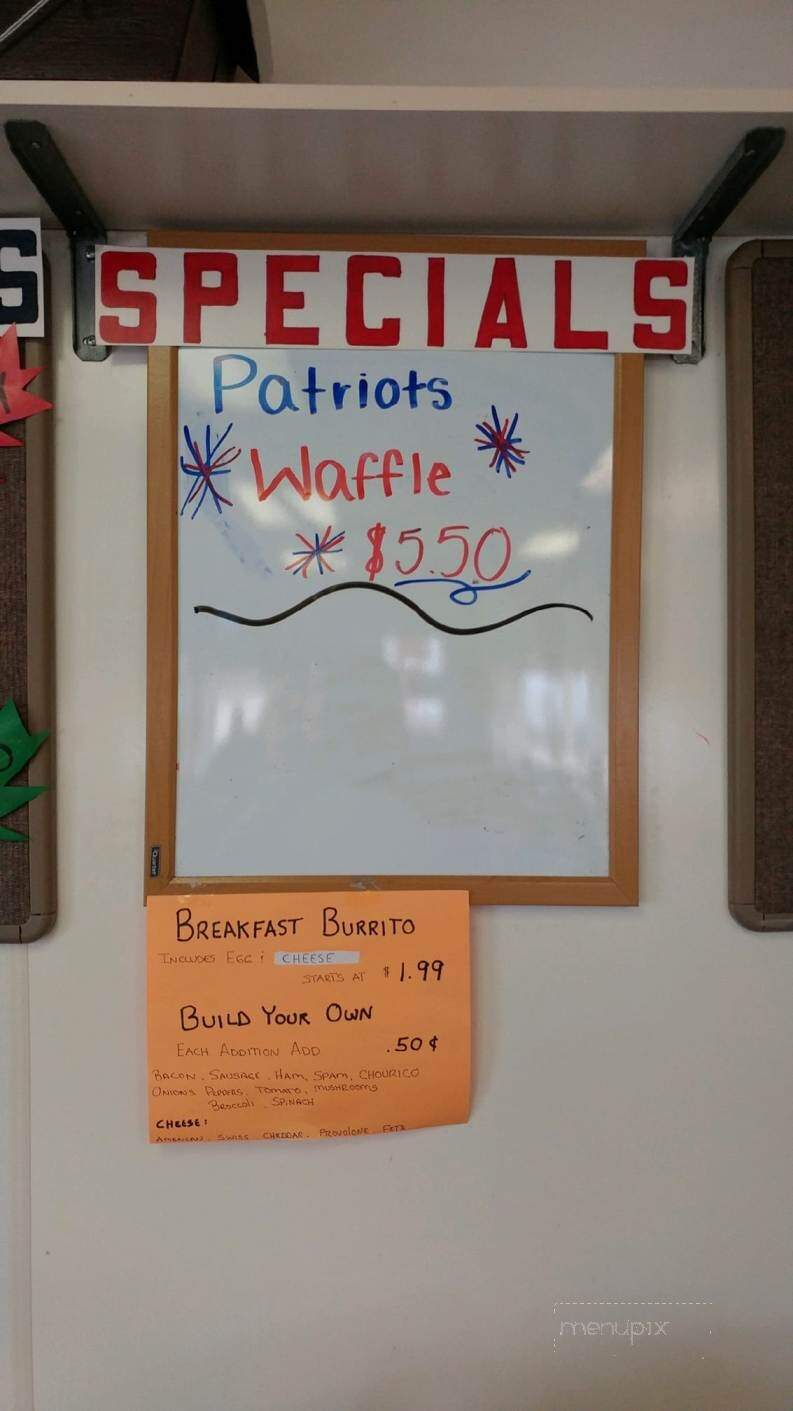 S
SPECIALS
Patriots
Waffle
$5.50
BREAKFAST BURRITO
INCLUDES EGG & CHEESE
STARTS AT $1.99
BUILD YOUR OWN
EACH ADDITION ADD .50¢
BACON, SAUSAGE, HAM, SPAM, CHOURICO
ONIONS PEPPERS, TOMATO, MUSHROOMS
BROCCOLI, SPINACH
CHEESE:
AMERICAN, SWISS, CHEDDAR, PROVOLONE, FETA
menupix